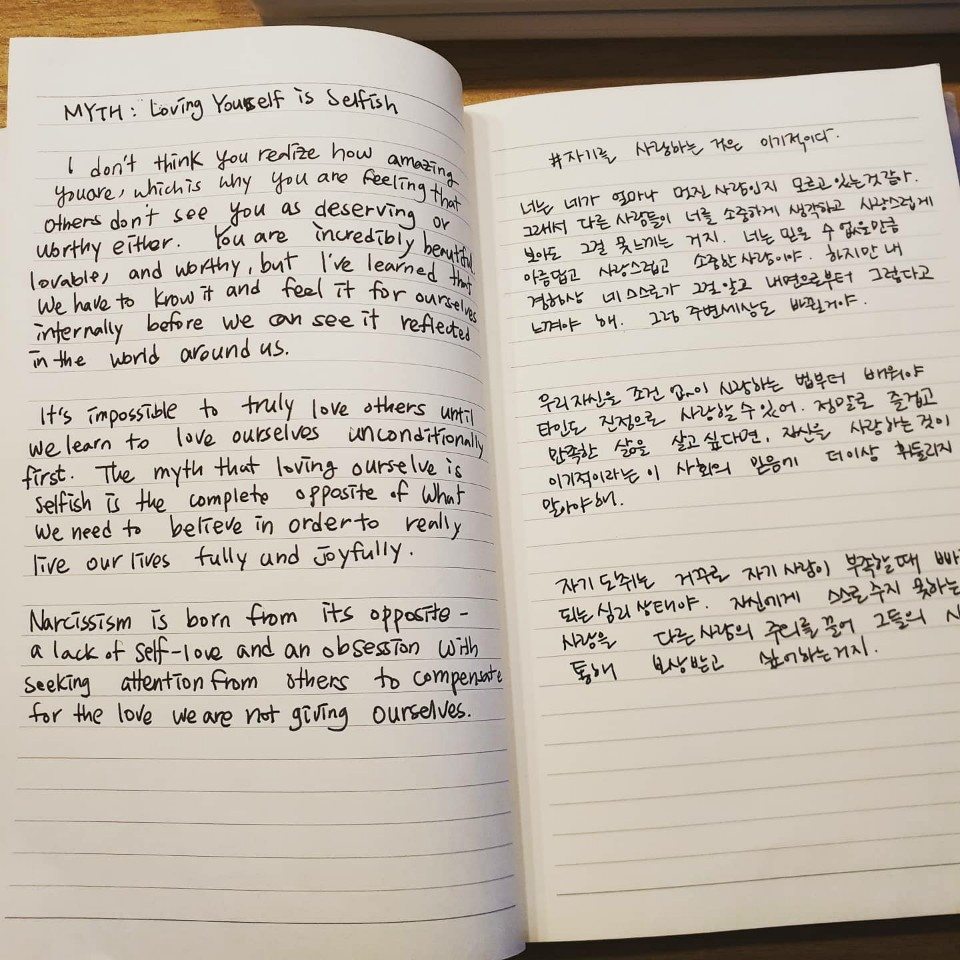 MYTH: Loving Yourself is Selfish
I don't think you realize how amazing
you are, which is why you are feeling that
others don't see you as deserving or
worthy either. You are incredibly beautiful,
lovable, and worthy, but I've learned that
we have to know it and feel it for ourselves
internally before we can see it reflected
in the world around us.
It's impossible to truly love others until
we learn to love ourselves unconditionally
first. The myth that loving ourselve is
selfish is the complete opposite of what
we need to believe in order to really
live our lives fully and joyfully.
Narcissism is born from its opposite -
a lack of self-love and an obsession with
seeking attention from others to compensate
for the love we are not giving ourselves.
#자기를 사랑하는 것은 이기적이다.
너는 네가 얼마나 멋진 사람인지 모르고 있는것 같아.
그래서 다른 사람들이 너를 소중하게 생각하고 사랑스럽게
보아도 그걸 못느끼는 거지. 너는 믿을 수 없을만큼
아름답고 사랑스럽고 소중한 사람이야. 하지만 내
경험상 네 스스로가 그걸 알고 내면으로부터 그렇다고
느껴야 해. 그럼 주변세상도 바뀔거야.
우리 자신을 조건 없이 사랑하는 법부터 배워야
타인도 진정으로 사랑할 수 있어. 정말로 즐겁고
만족한 삶을 살고 싶다면, 자신을 사랑하는 것이
이기적이라는 이 사회의 믿음에 더이상 휘둘리지
말아야 해.
자기 도취는 거꾸로 자기 사랑이 부족할 때 빠
되는 심리 상태야. 자신에게 스스로 주지 못하는
사랑을 다른 사람의 주의를 끌어 그들의
통해 보상받고 싶어하는 거지.